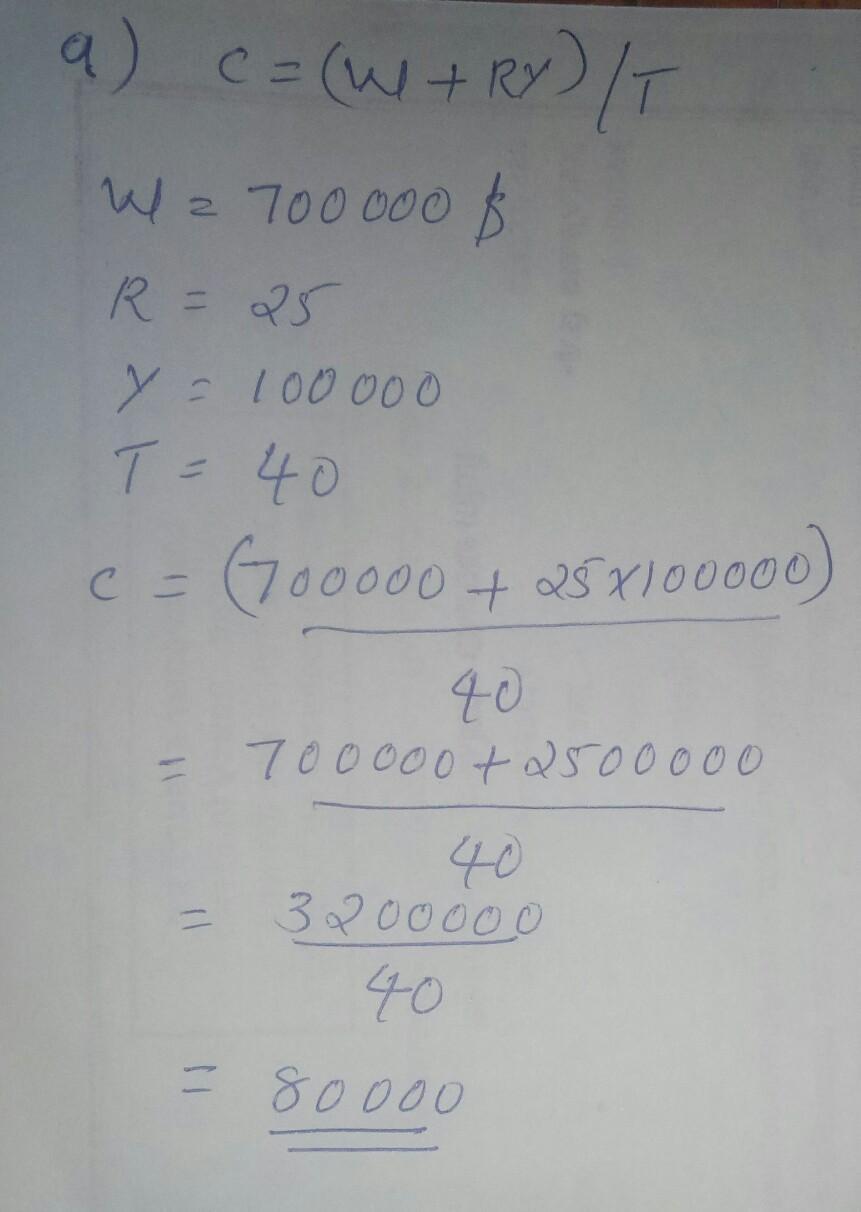 a) C = (W + RY)/T
W = 700000 $
R = 25
Y = 100000
T = 40
C = (700000 + 25x100000)
40
= 700000 + 2500000
40
= 3200000
40
= 80000